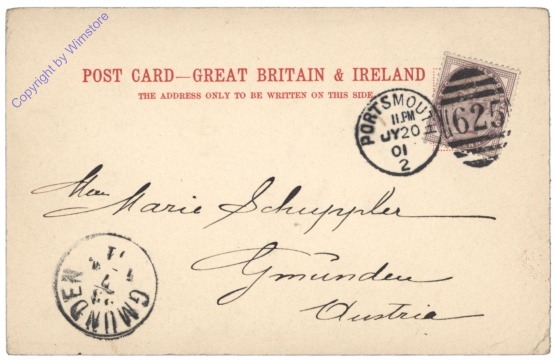 Copyright by Wimstore
POST CARD—GREAT BRITAIN & IRELAND
THE ADDRESS ONLY TO BE WRITTEN ON THIS SIDE.
PORTSMOUTH
11.PM
JY20
01
2
625
Marie Schuppler
Gmünden
Austria
GMUNDEN